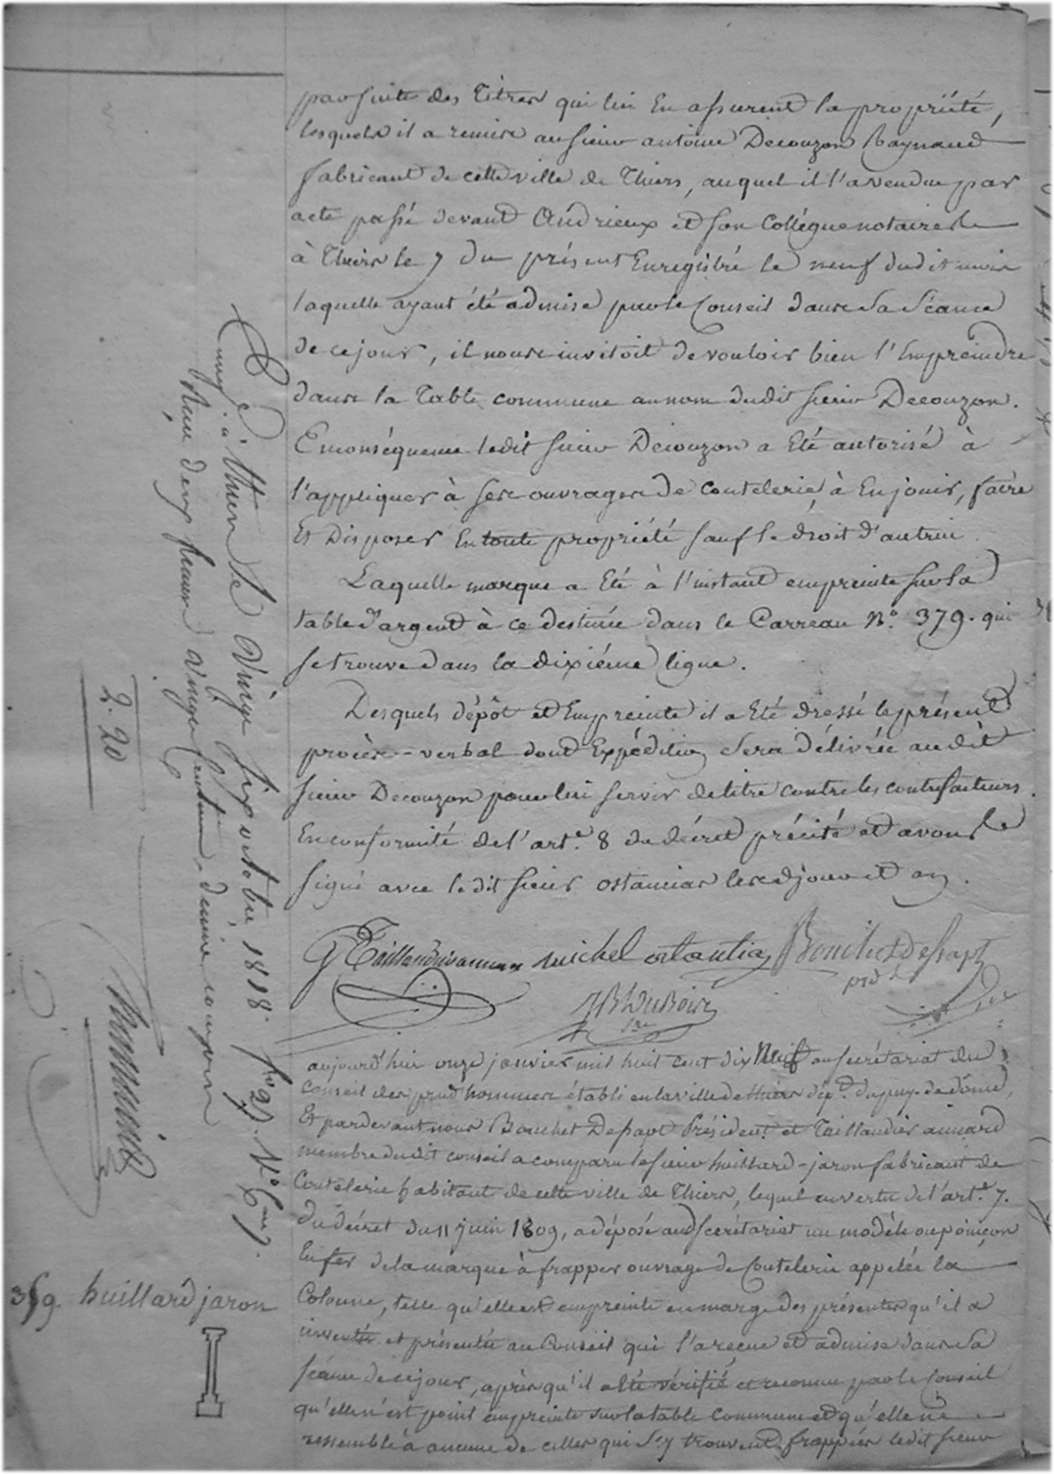 par suite des Titres qui lui En assurent la propriété,
lesquels il a remise au sieur antoine Decouzon Raynaud
fabricant de cette ville de Thiers, auquel il l'a vendue par
acte passé devant Andrieux et son Collégue notaires
à Thiers le 7 du présent Enregistré le neuf dudit mois
laquelle ayant été admise par le Conseil dans Sa Séance
de ce jour, il nous invitoit de vouloir bien l'Empreindre
dans la Table commune au nom dudit sieur Decouzon.
En conséquence ledit sieur Decouzon a Eté autorisé à
l'appliquer à ses ouvrages de coutelerie, à En jouir, faire
Et Disposer En toute propriété sauf le droit d'autrui
Laquelle marque a Eté à l'instant empreinte sur la
table d'argent à ce destinée dans le Carreau N.º 379. qui
se trouve dans la dixiéme ligne.
Desquels dépôt et Empreinte il a Eté dressé le présent
procès-verbal dont Expédition Sera délivrée audit
sieur Decouzon pour lui servir de titre contre les contrefacteurs.
En conformité de l'art.e 8 du décret précité et avons
signé avec le dit sieur ostancias lesd jour et an.
michel Bouchet Depapt
prdt
JB Dubois
Sre
aujourd'hui onze janvier mil huit cent dix Neuf au secrétariat du
Conseil des prud'hommes établi en la ville de thiers dép.t du puy-de-dôme,
Et pardevant nous Bouchet Depapt Président et Taillandier aimard
membre dudit conseil a comparu le sieur huillard-jaron fabricant de
Coutelerie habitant de cette ville de Thiers, lequel en vertu de l'art.e 7.
du décret du 11 juin 1809, a déposé aud Secrétariat un modèle ou poinçon
En fer de la marque à frapper ouvrage de Coutelerie appelée la
Colonne, telle qu'elle est empreinte en marge des présentes qu'il a
inventée et présentée au Conseil qui l'a reçue et admise dans Sa
séance de ce jour, après qu'il a Eté vérifié et reconnu par le Conseil
qu'elle n'est point empreinte sur la table commune et qu'elle ne
ressemble à aucune de celles qui S'y trouvent frappées ledit sieur
à Thiers le vingt six octobre 1818. fo 97. No
Reçu deux francs vingt centimes, dixième compris
2. 20
359. huillard jaron